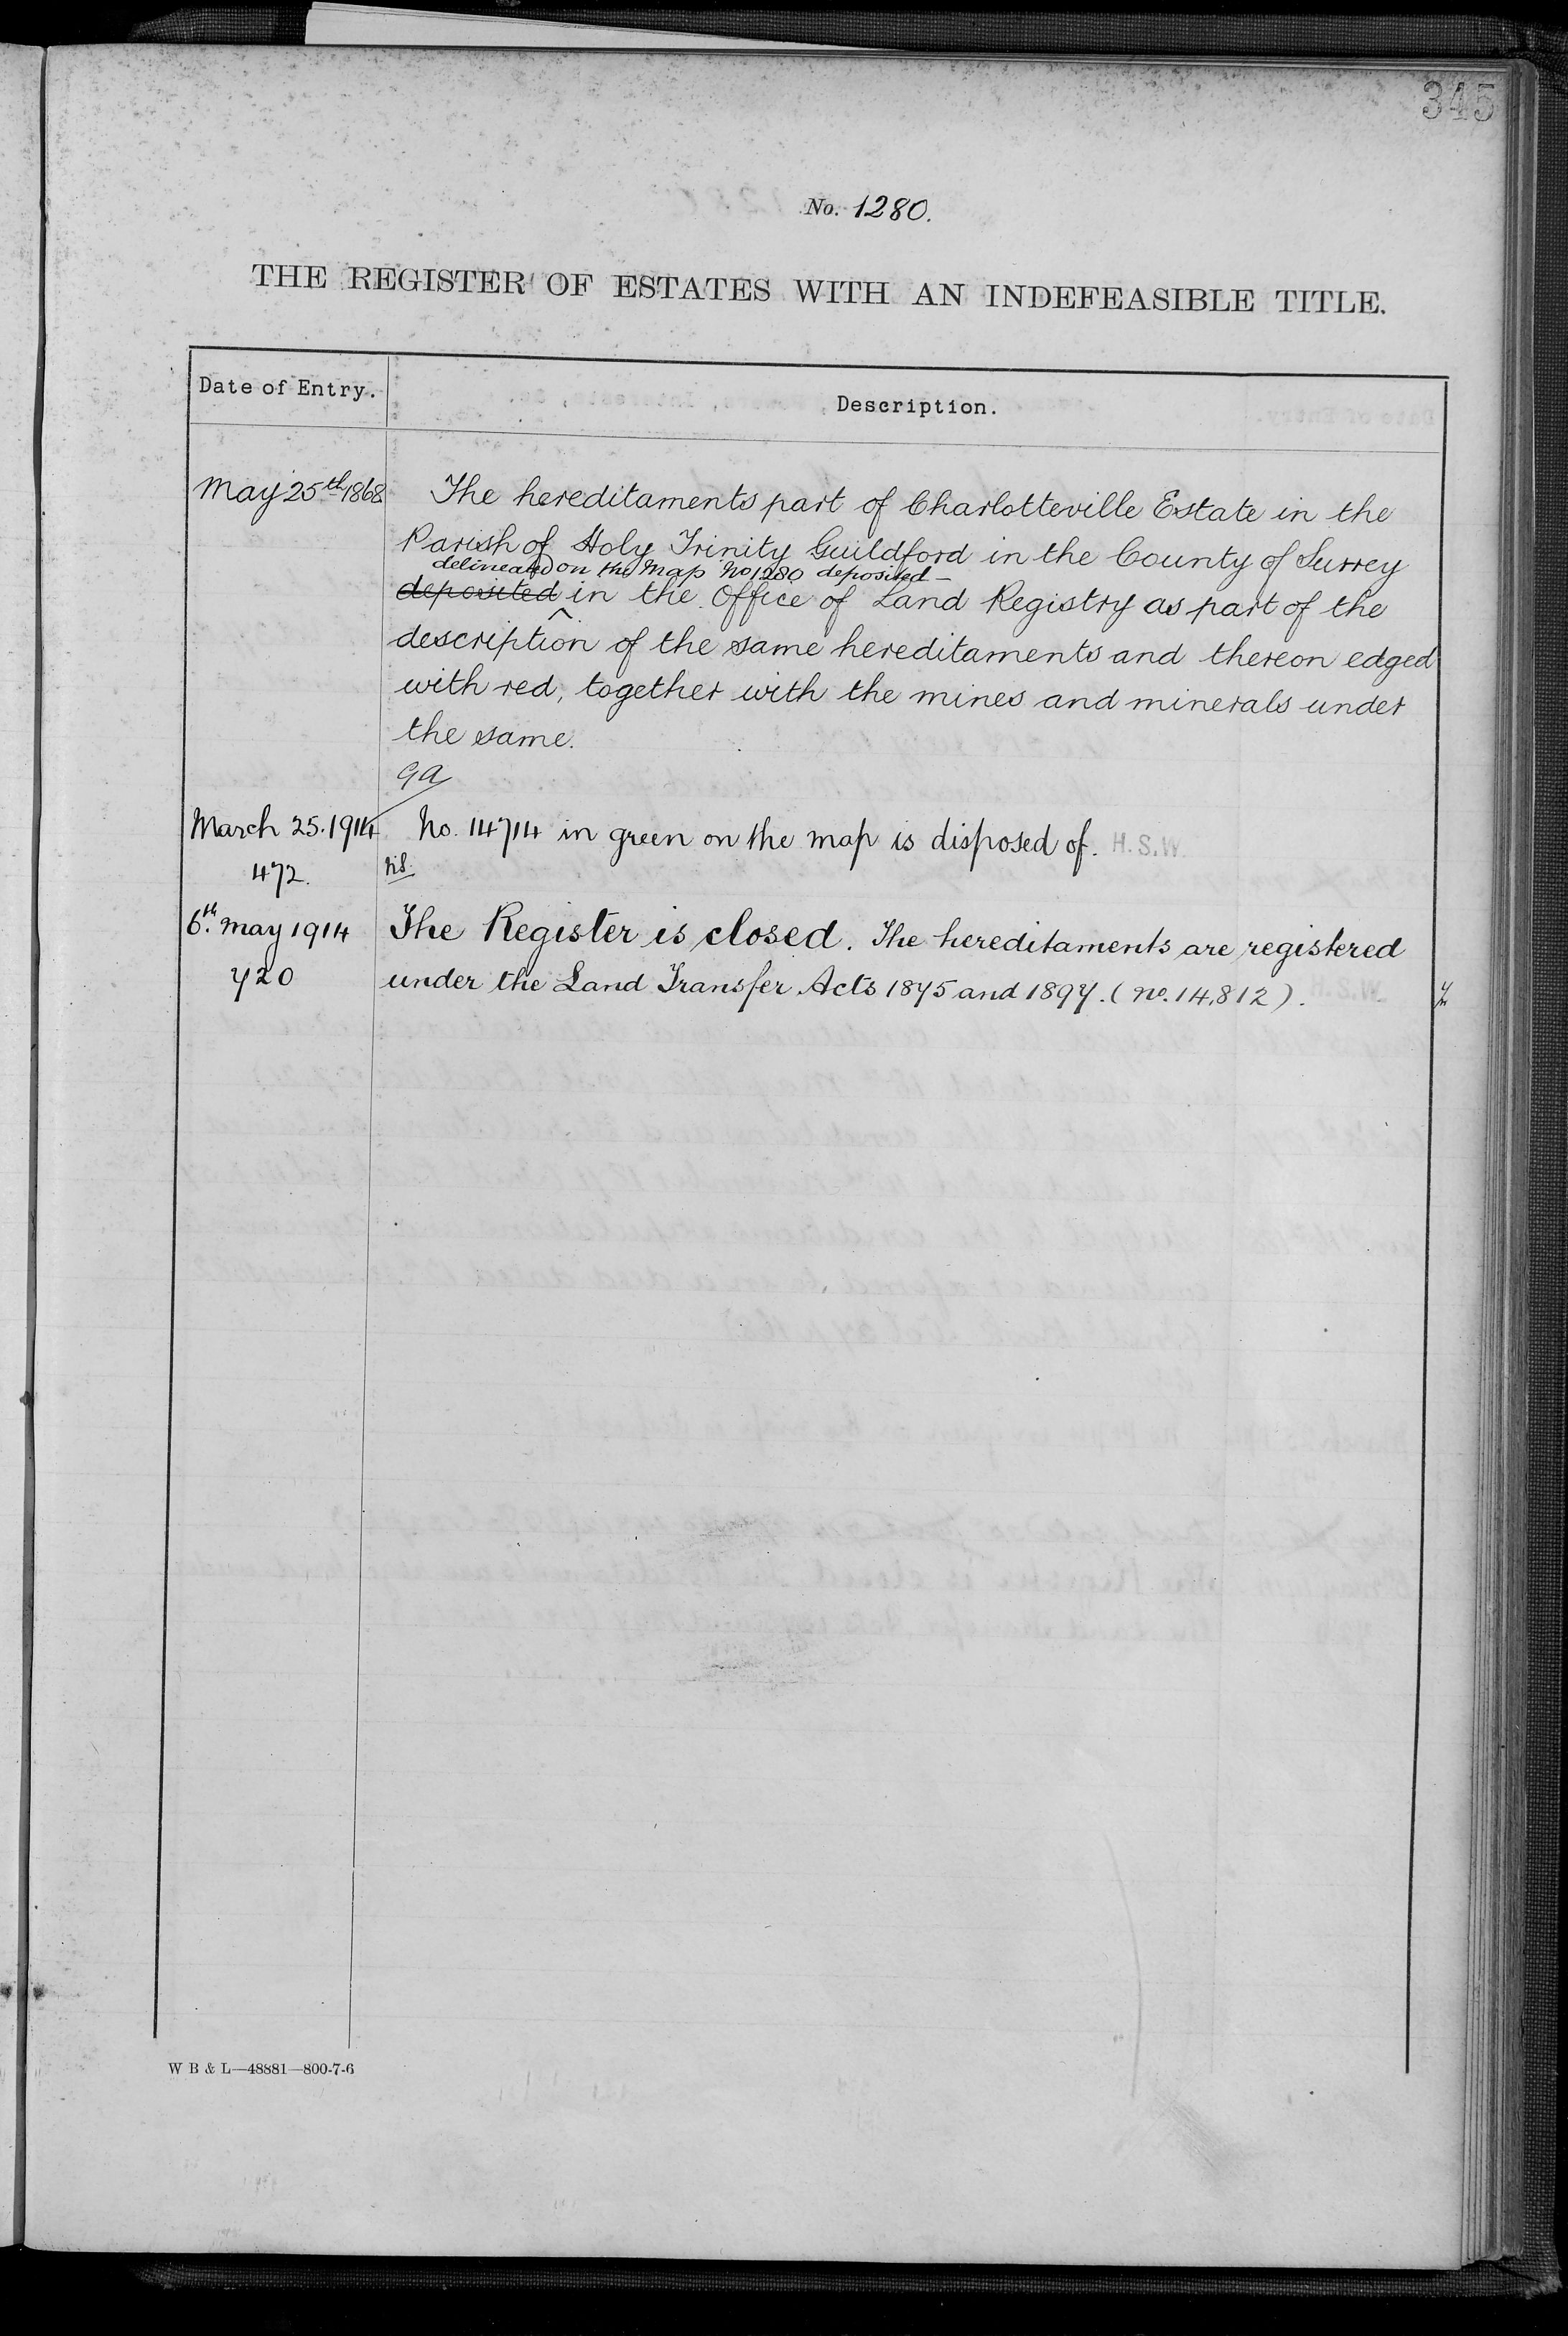 345
No. 1280.
THE REGISTER OF ESTATES WITH AN INDEFEASIBLE TITLE.
Date of Entry. Description.
May 25th 1868 The hereditaments part of Charlotteville Estate in the
Parish of Holy Trinity Guildford in the County of Surrey
delineated on the Map No 1280 deposited
deposited in the Office of Land Registry as part of the
description of the same hereditaments and thereon edged
with red, together with the mines and minerals under
the same.
March 25. 1914 No. 14714 in green on the map is disposed of. H.S.W.
472.
6th May 1914 The Register is closed. The hereditaments are registered
720 under the Land Transfer Acts 1875 and 1897. (No. 14,812).
W B & L—48881—800-7-6